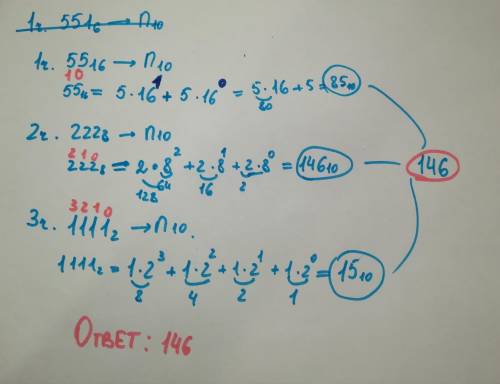 1ч. 551₆ → П₁₀
1ч. 55₁₆ → П₁₀
1 0
55₁₆ = 5·16¹ + 5·16⁰ = 5·16 + 5 = 85₁₀
80
2ч. 222₈ → П₁₀
2 1 0
222₈ = 2·8² + 2·8¹ + 2·8⁰ = 146₁₀ 146
64 16 2
128
3 2 1 0
3ч. 1111₂ → П₁₀.
1111₂ = 1·2³ + 1·2² + 1·2¹ + 1·2⁰ = 15₁₀
8 4 2 1
Ответ: 146